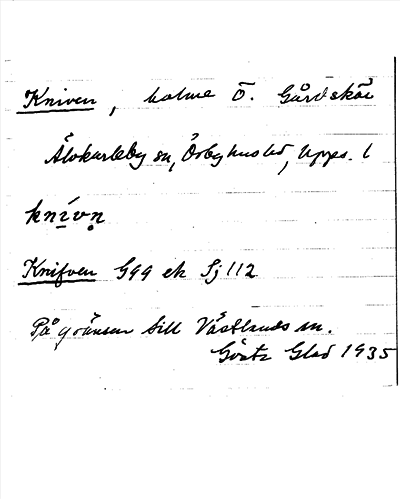 Kniven, holme Ö. Gårdskär
Älvkarleby sn, Örbyhus hd, Upps. l
knívn̥
Knifven G99 ek Sj 112
På gränsen till Västlands sn.
Gösta Glad 1935